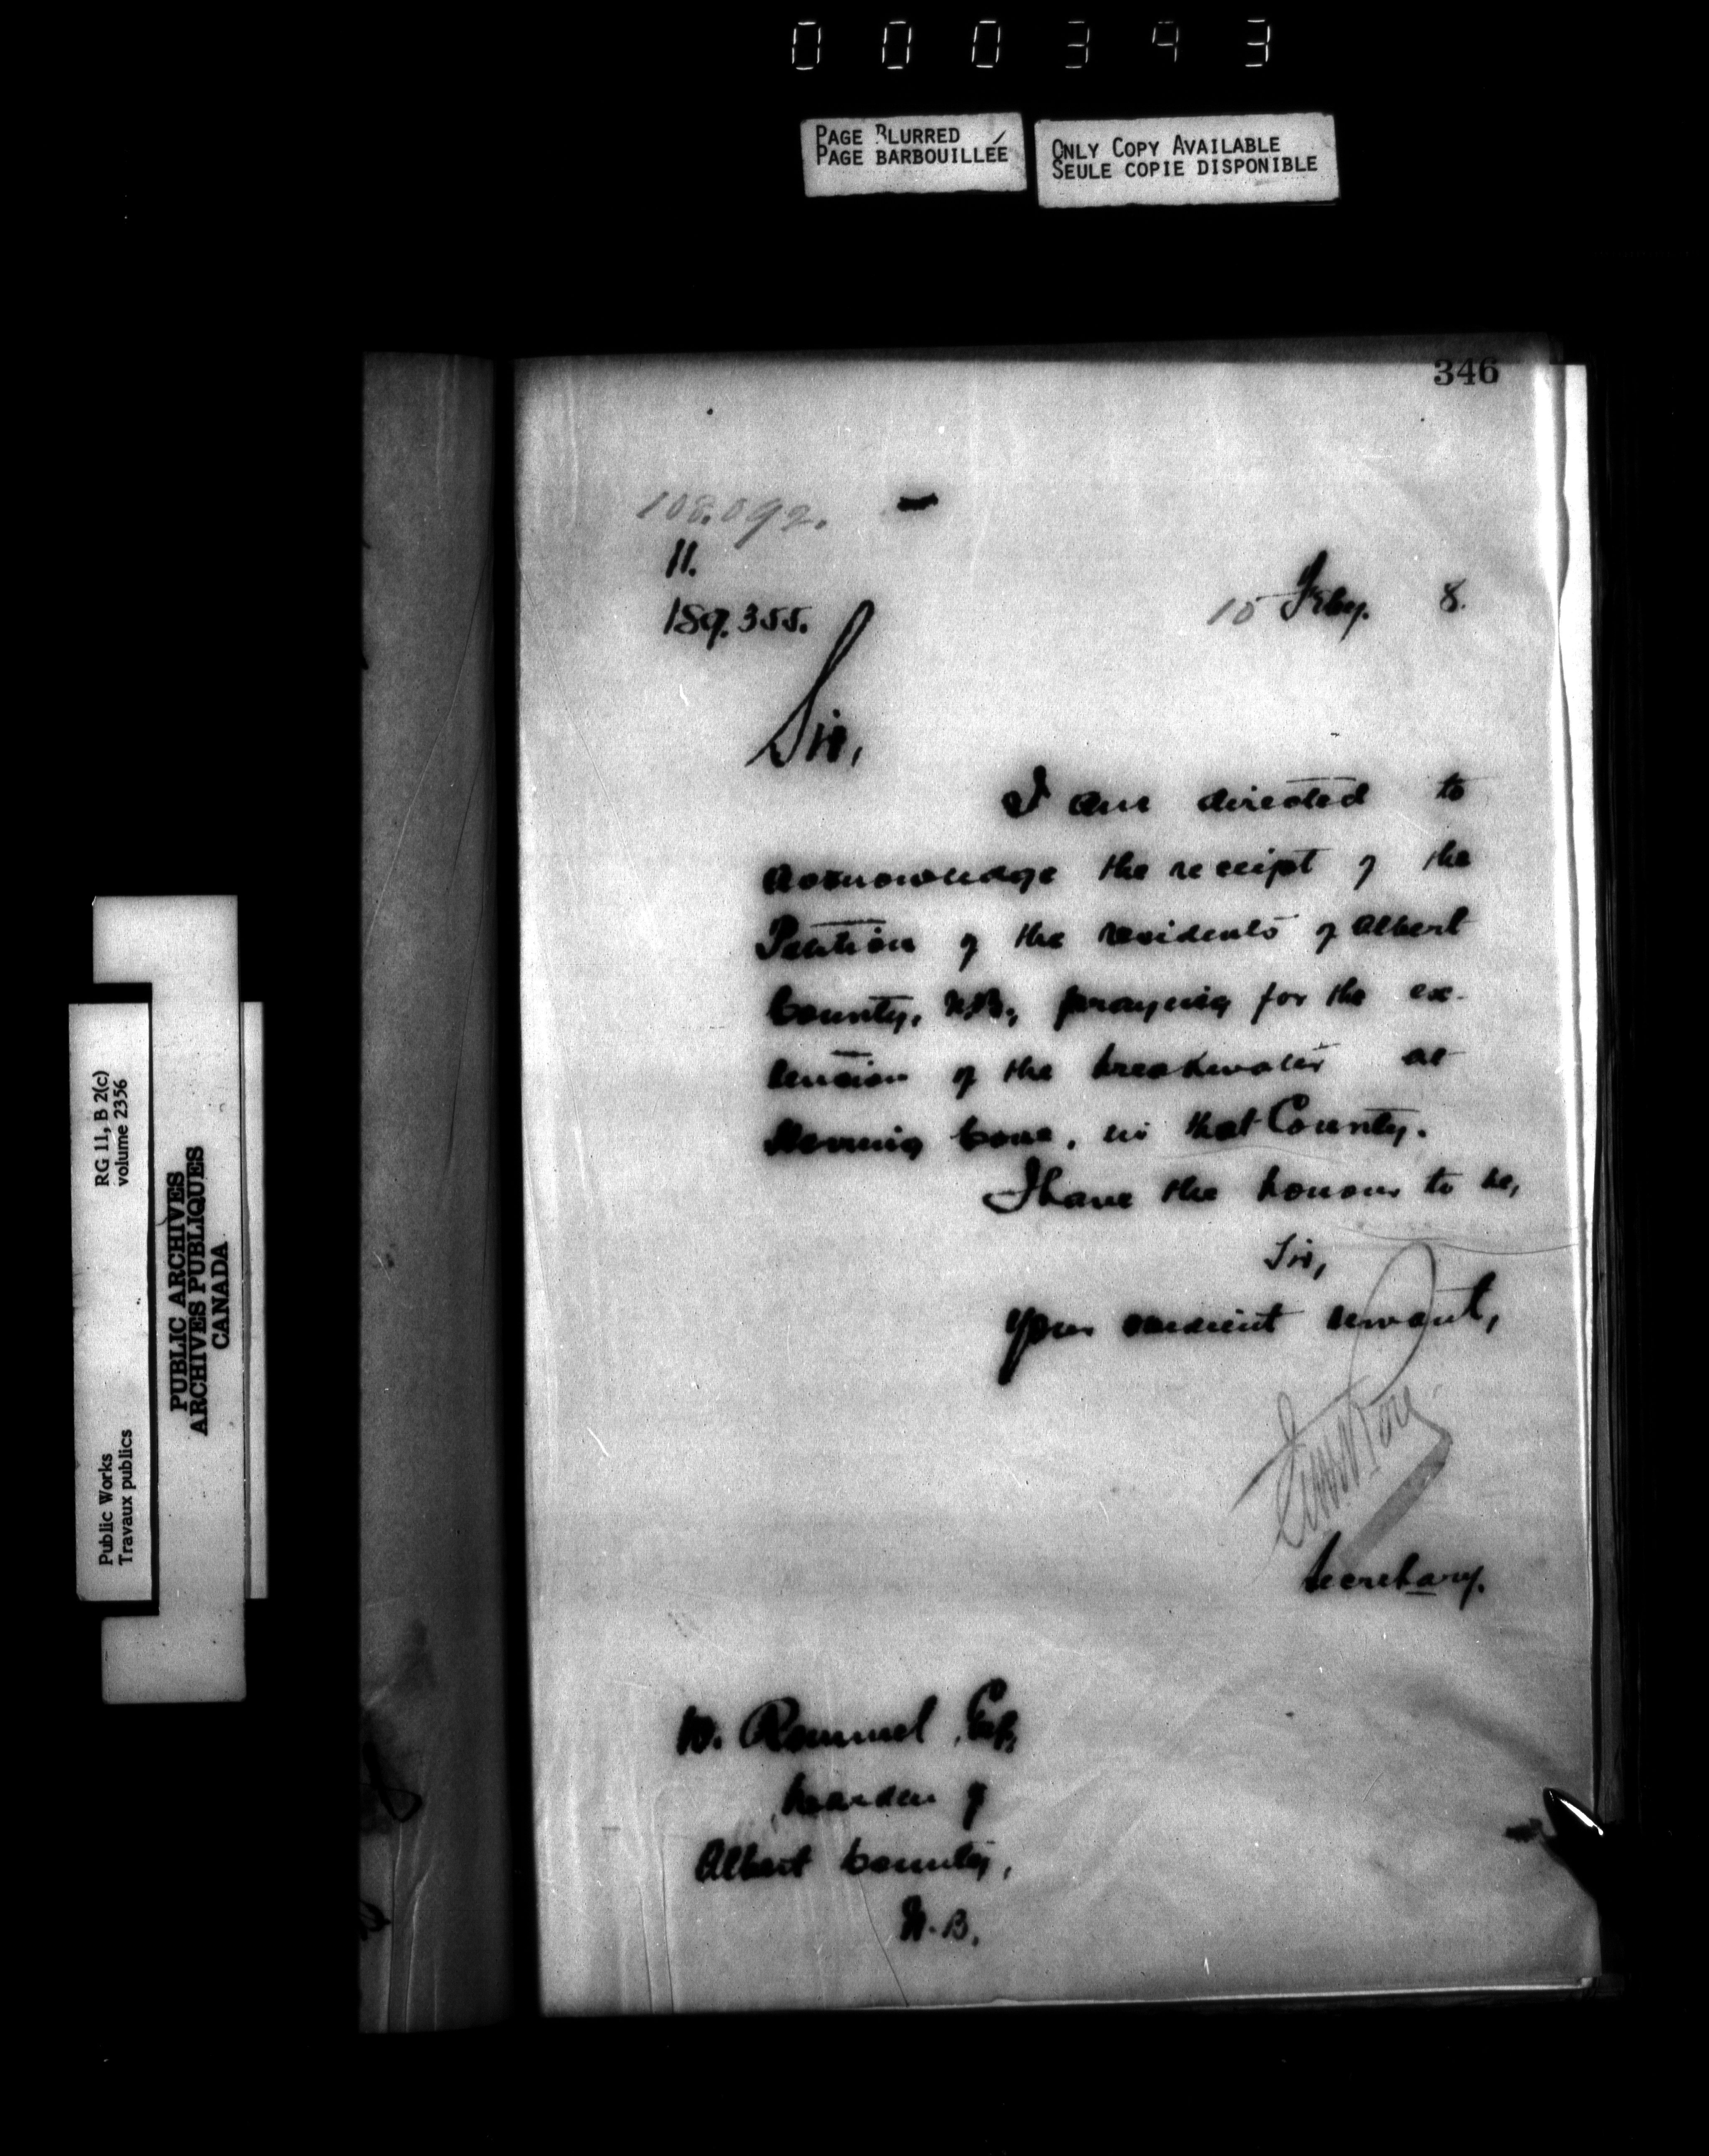 000343
PAGE BLURRED
PAGE BARBOUILLÉE
ONLY COPY AVAILABLE
SEULE COPIE DISPONIBLE
346
108.092.
11.
189.355.
15 Feby. 8.
Sir,
I am directed to
acknowledge the receipt of the
Petition of the residents of Albert
County, N.B., praying for the ex-
tension of the breakwater at
Herring Cove, in that County.
I have the honour to be,
Sir,
Your obedient servant,
Secretary.
W. Rommel, Esq,
Warden of
Albert County,
N.B.
RG 11, B 2(c)
volume 2356
Public Works
Travaux publics
PUBLIC ARCHIVES
ARCHIVES PUBLIQUES
CANADA